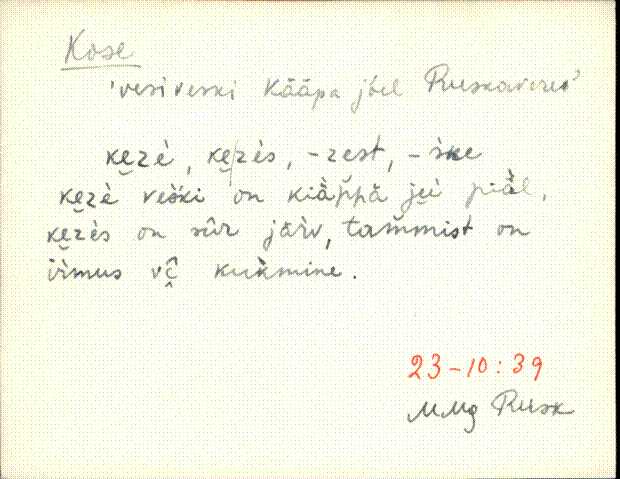 Kose
'vesiveski Kääpa jõel Ruskaveres'
ke̮zè, ke̮zès, -zest, -s̀ke
ke̮zè veški on kiäp̆pä je̮è piäl,
ke̮zès on sûr järv, tam̆mist on
irmus kukmine.
23-10:39
MMg Rusk